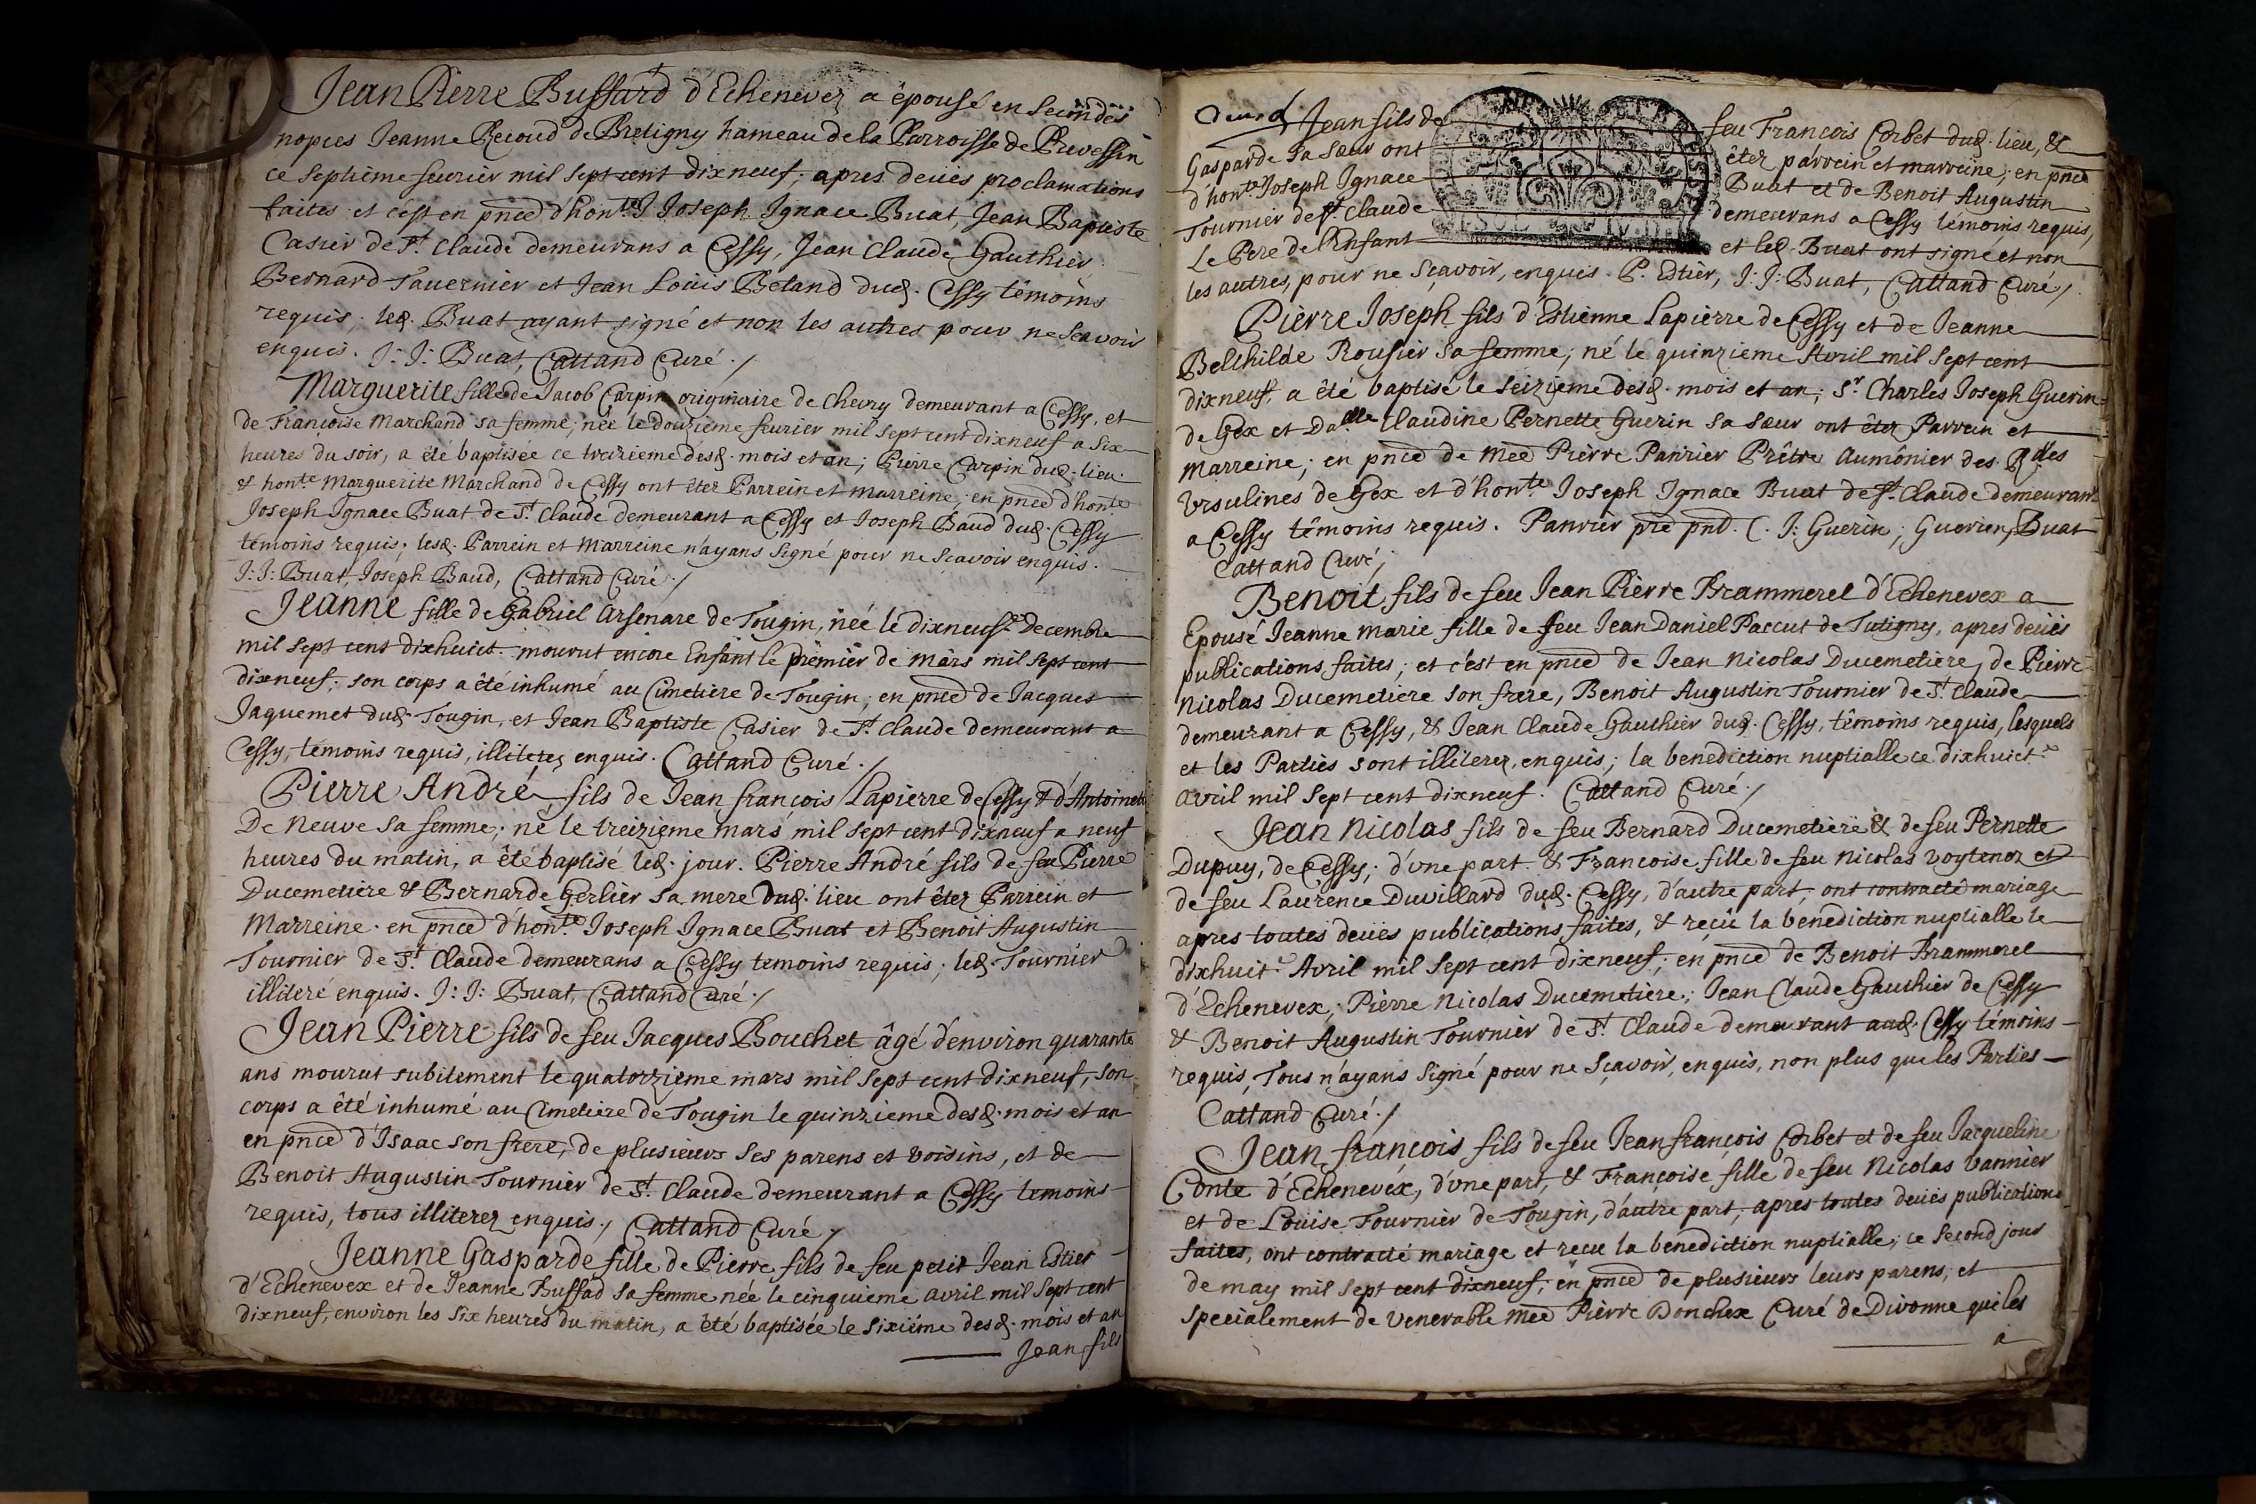 Jean Pierre Buffard d'Echenevez a épousé en secondes
nopces Jeanne Recoud de Bretigny hameau de la Parroisse de Prevessin
ce septième feurier mil sept cent dixneuf; apres deües proclamations
faites et c'est en pnce d'honte J Joseph Ignace Buat, Jean Baptiste
Casier de St Claude demeurans a Cessy, Jean Claude Gauthier
Bernard Tauernier et Jean Loüis Beland dud. Cessy témoins
requis. led. Buat ayant signé et non les autres pour ne Sçavoir
enquis. J: J: Buat, Cattand Curé ./
Marguerite fille de Jacob Carpin originaire de Chevry demeurant a Cessy, et
de Françoise Marchand sa femme; née le douzieme feurier mil sept cent dixneuf a six
heures du soir, a été baptisée ce treizieme desd. mois et an; Pierre Carpin dud. lieu
& honte Marguerite Marchand de Cessy ont êtez Parrein et marreine; en pnce d'honte
Joseph Ignace Buat de St Claude demeurant a Cessy et Joseph Baud dud. Cessy
témoins requis; lesd. Parrein et Marreine n'ayans signé pour ne sçavoir enquis.
J: J: Buat, Joseph Baud, Cattand Curé ./
Jeanne fille de Gabriel Arsenare de Tougin, née le dixneufe Decembre
mil sept cent dixhuict. mourut encore Enfant le premier de mars mil sept cent
dixneuf; son corps a été inhumé au Cimetiere de Tougin; en pnce de Jacques
Jaquemet dud. Tougin, et Jean Baptiste Casier de St Claude demeurant a
Cessy, témoins requis, illiterez enquis. Cattand Curé ./
Pierre André, fils de Jean françois Lapierre de Cessy & d'Antoinete
De Neuve sa femme; né le treizieme mars mil sept cent dixneuf a neuf
heures du matin, a été baptisé led. jour. Pierre André fils de feu Pierre
Ducemetiere & Bernarde Gerlier sa mere dud. lieu ont êtez Parrein et
Marreine. en pnce d'honte Joseph Ignace Buat et Benoit Augustin
Tournier de St Claude demeurans a Cessy temoins requis; led. Tournier
illiteré enquis. J: J: Buat, Cattand Curé ./
Jean Pierre fils de feu Jacques Bouchet âgé d'environ quarante
ans mourut subitement le quatorzieme mars mil sept cent dixneuf, son
corps a été inhumé au Cimetiere de Tougin le quinzieme desd. mois et an
en pnce d'Isaac son frere; de plusieurs ses parens et voisins, et de
Benoit Augustin Tournier de St Claude demeurant a Cessy temoins
requis, tous illiterez enquis./ Cattand Curé /
Jeanne Gasparde fille de Pierre fils de feu petit Jean Estier
d'Echenevex et de Jeanne Buffad sa femme née le cinquieme avril mil sept cent
dixneuf, environ les six heures du matin, a été baptisée le sixiéme desd. mois et an
Jean fils
Jean fils de feu François Corbet dud. lieu, &
Gasparde sa sœur ont êtez parrein et marreine; en pnce
d'honte Joseph Ignace Buat et de Benoit Augustin
Tournier de St Claude demeurans a Cessy témoins requis,
Le Pere de l'Enfant et led. Buat ont signé et non
les autres, pour ne sçavoir, enquis. P. Estier, J: J: Buat, Cattand Curé /
Pierre Joseph fils d'Estienne Lapierre de Cessy et de Jeanne
Belthilde Rousier sa femme; né le quinzieme Avril mil sept cent
dixneuf, a été baptisé le seizieme desd. mois et an; Sr Charles Joseph Guerin
de Gex et Dalle Claudine Pernette Guerin sa sœur ont êtez Parrein et
marreine; en pnce de mee Pierre Panrier Prêtre aumônier des Rdes
Ursulines de Gex et d'honte Joseph Ignace Buat de St Claude demeurant
a Cessy témoins requis. Panrier pre pnt. C. J: Guerin, Guerin, Buat
Cattand Curé;
Benoit fils de feu Jean Pierre Brammerel d'Echenevex a
Epousé Jeanne marie fille de feu Jean Daniel Paccut de Tutigny, apres deües
publications faites; et c'est en pnce de Jean Nicolas Ducemetiere, de Pierre
Nicolas Ducemetiere son frere, Benoit Augustin Tournier de St Claude
demeurant a Cessy, & Jean Claude Gauthier dud. Cessy, témoins requis, lesquels
et les Parties sont illiterez, enquis; la benediction nuptialle ce dixhuicte
avril mil sept cent dixneuf. Cattand Curé ./
Jean Nicolas fils de feu Bernard Ducemetiere & de feu Pernette
Dupuy, de Cessy; d'une part & Françoise fille de feu Nicolas Voytenoz et
de feu Laurence Duvillard dud. Cessy, d'autre part, ont contracté mariage
apres toutes deües publications faites, & reçu la benediction nuptialle le
dixhuite Avril mil sept cent dixneuf; en pnce de Benoit Brammerel
d'Echenevex; Pierre Nicolas Ducemetiere; Jean Claude Gauthier de Cessy
& Benoit Augustin Tournier de St Claude demeurant aud. Cessy témoins
requis, Tous n'ayans signé pour ne sçavoir, enquis, non plus que les Parties
Cattand Curé ./
Jean françois fils de feu Jean françois Corbet et de feu Jacqueline
Conte d'Echenevex, d'une part, & Françoise fille de feu Nicolas Vannier
et de Loüise Tournier de Tougin, d'autre part, apres toutes deües publications
faites, ont contracté mariage et recu la benediction nuptialle; ce second jour
de may mil sept cent dixneuf; en pnce de plusieurs leurs parens, et
specialement de venerable mee Pierre Donchex Curé de Divonne qui les
a